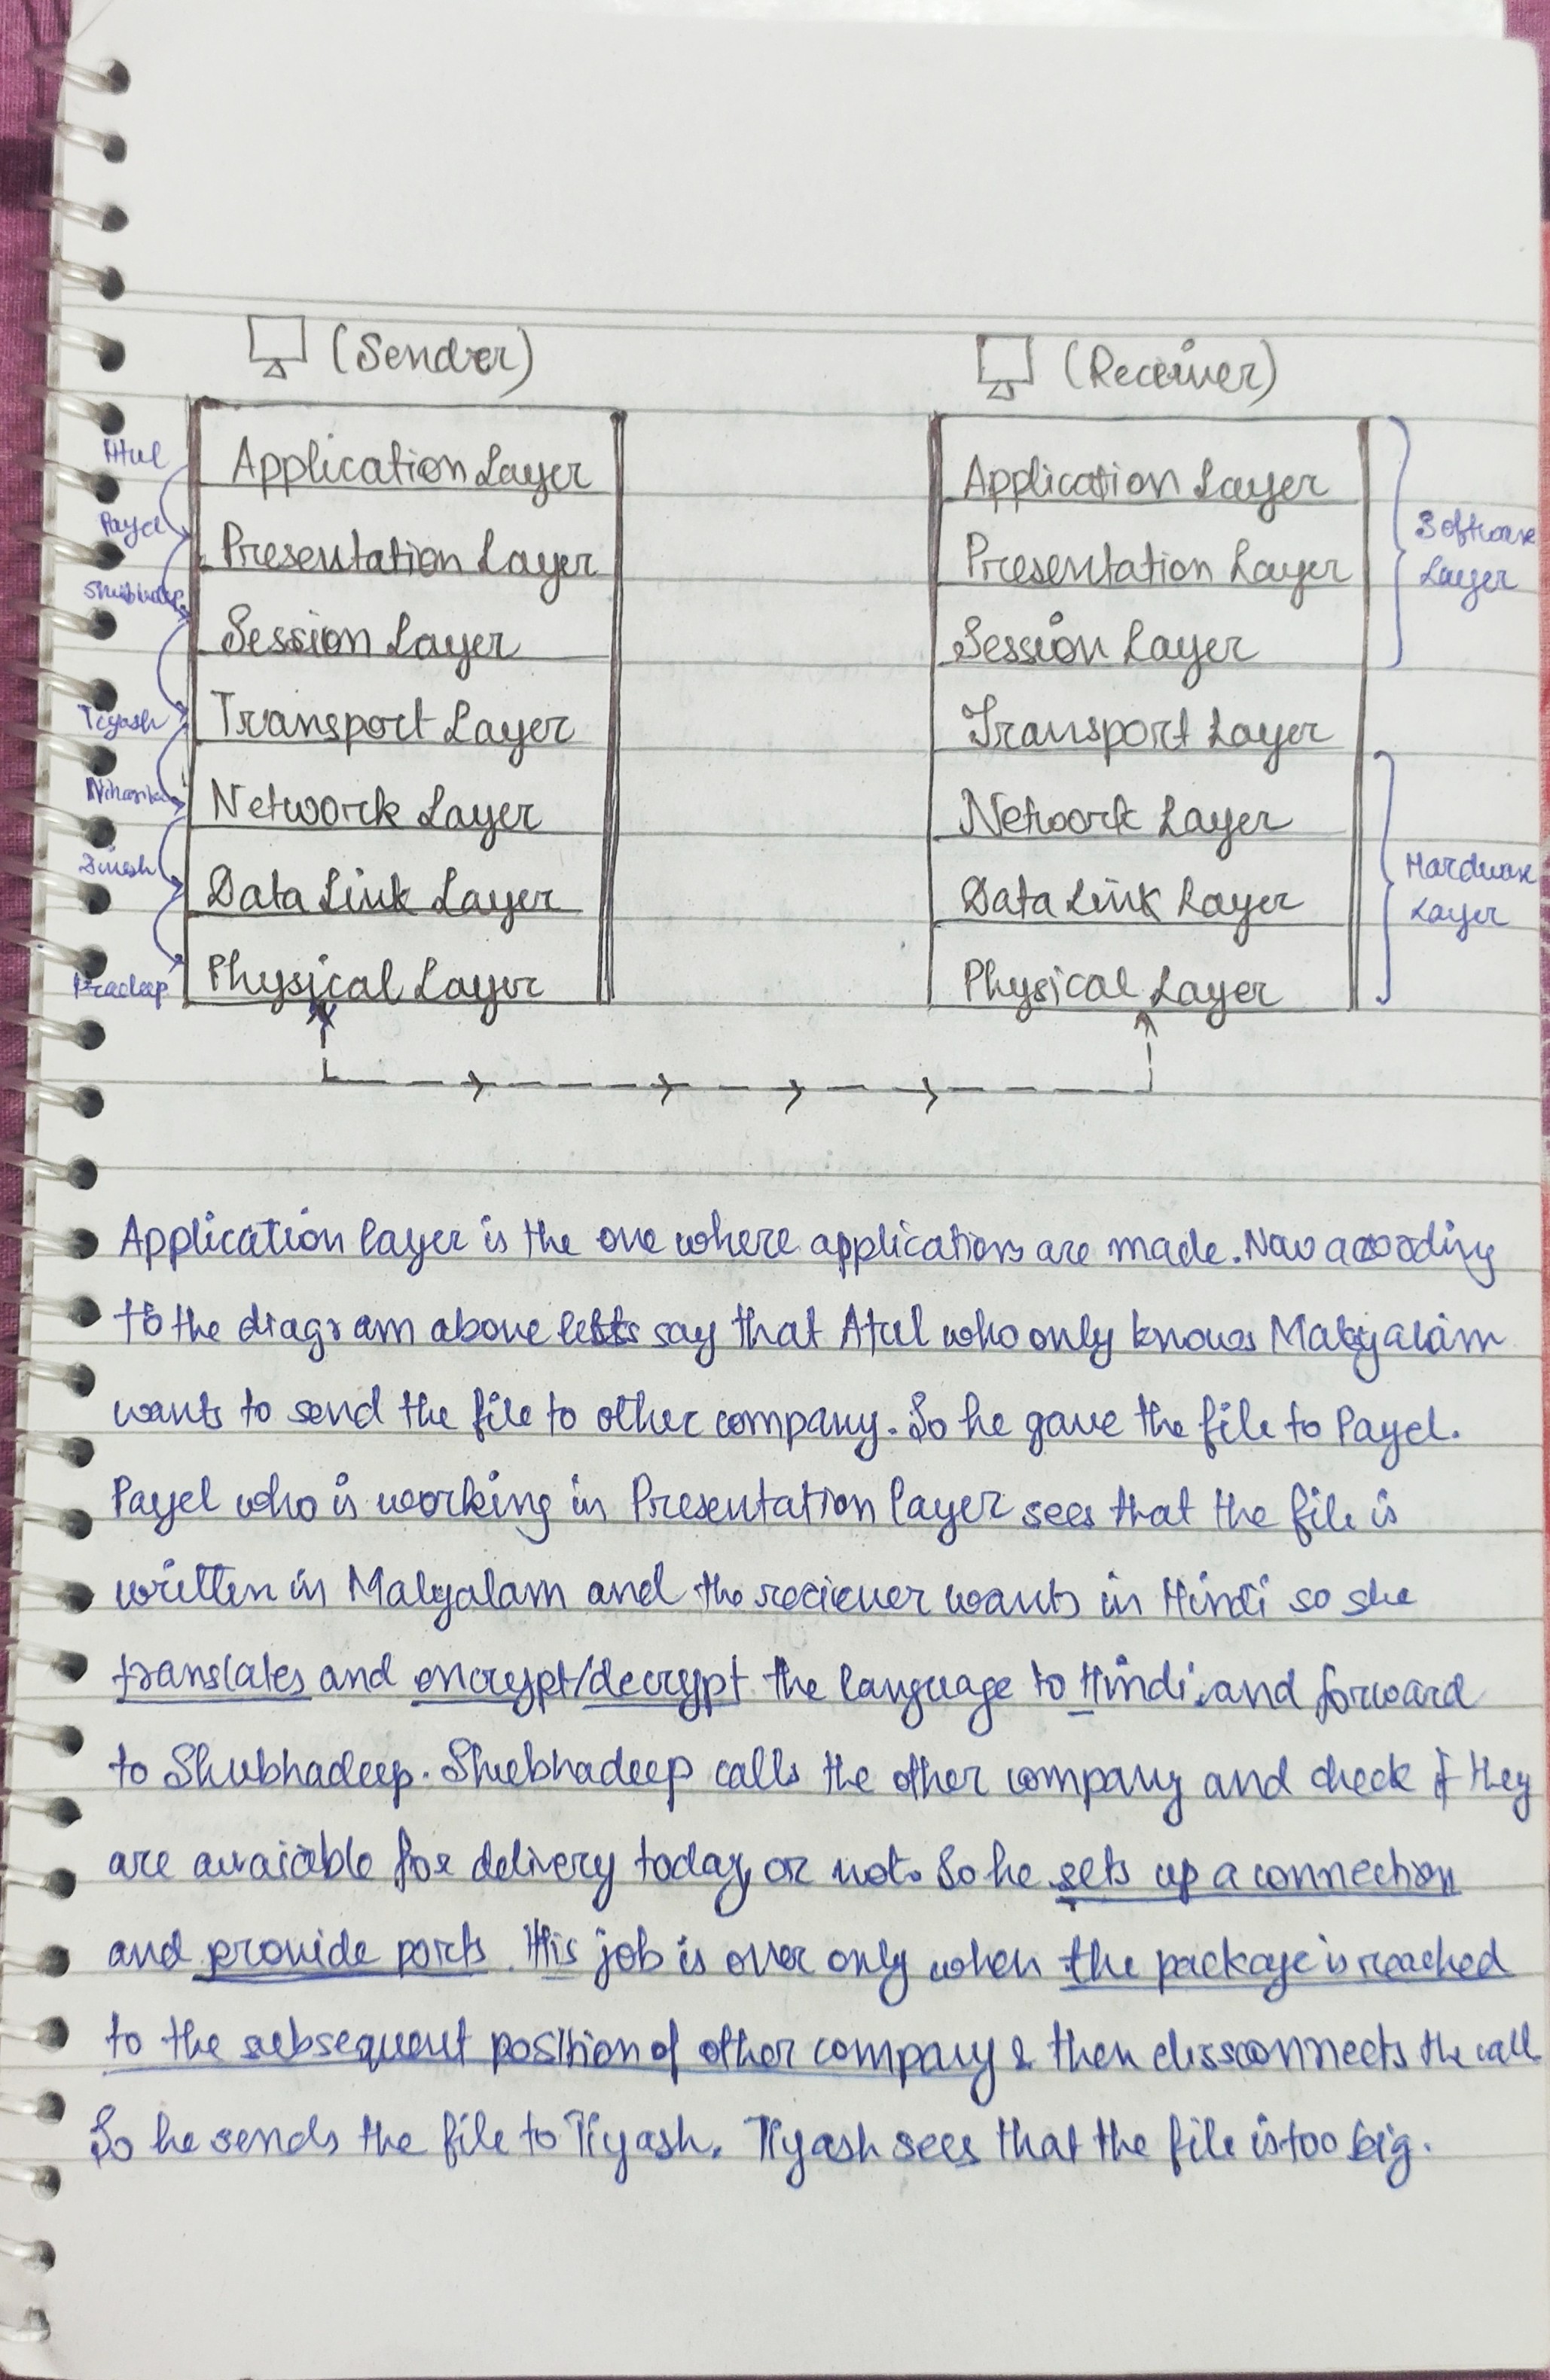 (Sender)
(Receiver)
Atul
Application Layer
Payel
Presentation Layer
Shubhadeep
Session Layer
Tiyash
Transport Layer
Niharika
Network Layer
Dinesh
Data Link Layer
Pradeep
Physical Layer
Application Layer
Presentation Layer
Session Layer
Transport Layer
Network Layer
Data Link Layer
Physical Layer
Software
Layer
Hardware
Layer
Application layer is the one where applications are made. Now according
to the diagram above lets say that Atul who only knows Malyalam
wants to send the file to other company. So he gave the file to Payel.
Payel who is working in Presentation layer sees that the file is
written in Malyalam and the reciever wants in Hindi so she
translates and encrypt/decrypt the language to Hindi and forward
to Shubhadeep. Shubhadeep calls the other company and check if they
are avaiable for delivery today or not. So he sets up a connection
and provide ports. His job is over only when the package is reached
to the subsequent position of other company & then dissconnects the call
So he sends the file to Tiyash. Tiyash sees that the file is too big.